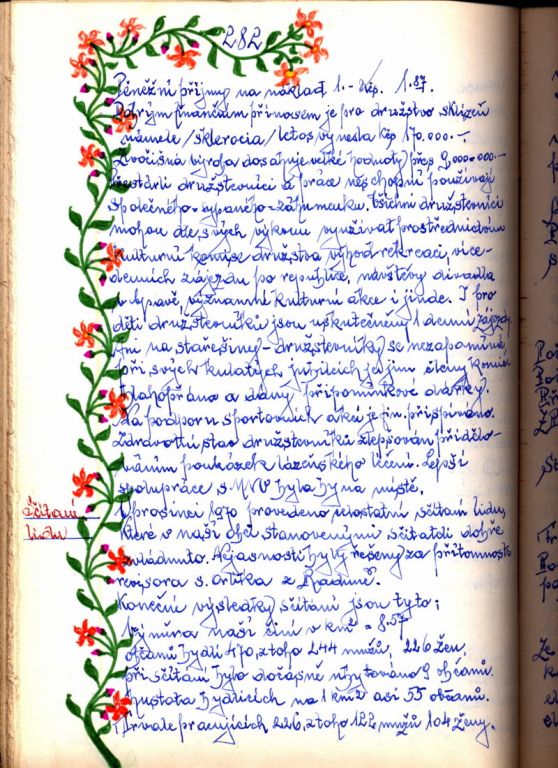 282
Peněžní příjmy na náklad 1.- Kčs. 1.87.
Dobrým finančním přínosem je pro družstvo sklizeň
námele /sklerocia/ letos vynesla Kčs 170.000.-
Živočišná výroba dosahuje velké hodnoty přes 2,000.000.-
Přestárlí družstevníci a práce neschopní používají
společného-sypaného-záhumenku. Všichni družstevníci
mohou dle svých výkonu využívat prostřednictvím
kulturní komise družstva výhod rekreací, více-
denních zájezdu po republice, návštěvy divadla
v Opavě, významné kulturní akce i jinde. I pro
děti družstevníků jsou uskutečněny 1 denní zájezdy.
Ani na stařešiny-družstevníky se nezapomíná,
při svých kulatých jubileích je jim členy komise
blahopřáno a dány připomínkové dárky.
Na podporu sportovních akcí je fin. přispíváno.
Zdravotní stav družstevníků zlepšován přidělo-
váním poukázek lázeňského léčení. Lepší
spolupráce s MNV byla by na místě.
Sčítání
lidu
V prosinci 1970 provedeno celostátní sčítání lidu,
které v naší obci stanovenými sčítateli dobře
zvládnuto. Nejasnosti byly řešeny za přítomnosti
revisora s. Orlíka z Raduně.
Konečné výsledky sčítání jsou tyto:
Výměra naší činí v km² = 8.57
občanů bydlí 470, z toho 244 mužů, 226 žen,
při sčítání bylo dočasně ubytováno 9 občanů.
Hustota bydlících na 1 km² asi 55 občanů.
Trvale pracujících 226, z toho 122 mužů 104 ženy.